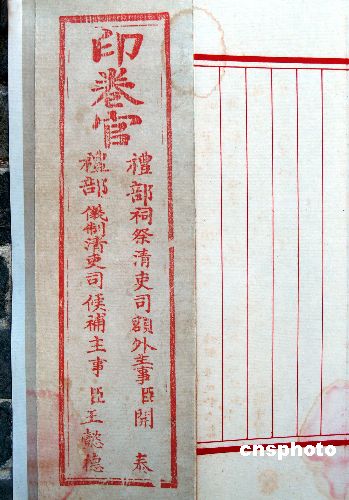 印卷官
禮部祠祭清吏司額外主事臣開泰
禮部儀制清吏司候補主事臣王懿德
cnsphoto